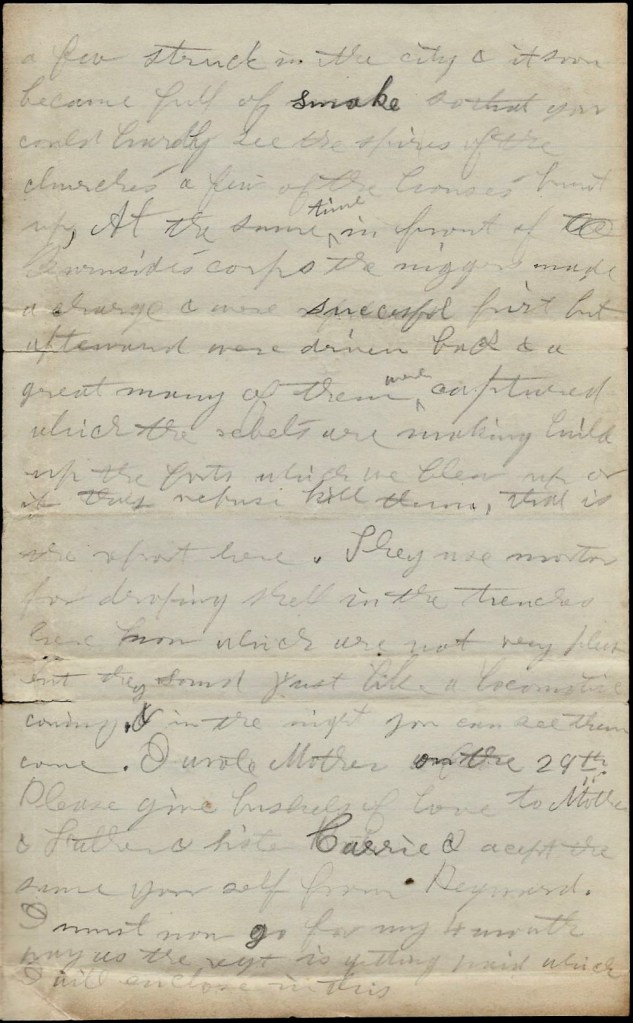 a few struck in the city & it soon
became full of smoke so that you
could hardly see the spires of the
churches a few of the houses burnt
up, At the same time in front of the
Burnsides corps the niggers made
a charge & were succesful first but
afterward were driven back & a
great many of them were captured
which the rebels are making build
up the forts which we blew up or
if they refuse kill them, that is
the report here. They use mortar
for droping shell in the trenches
here now which are not very
but they sound just like a locomotive
coming, & in the night you can see them
come. I wrote Mother on the 29th
Please give bushels of love to Mother
& Father & Carrie & acept the
same your self from Heyward.
I must now go for my 4 month
pay as the regt is getting paid which
I will enclose in this